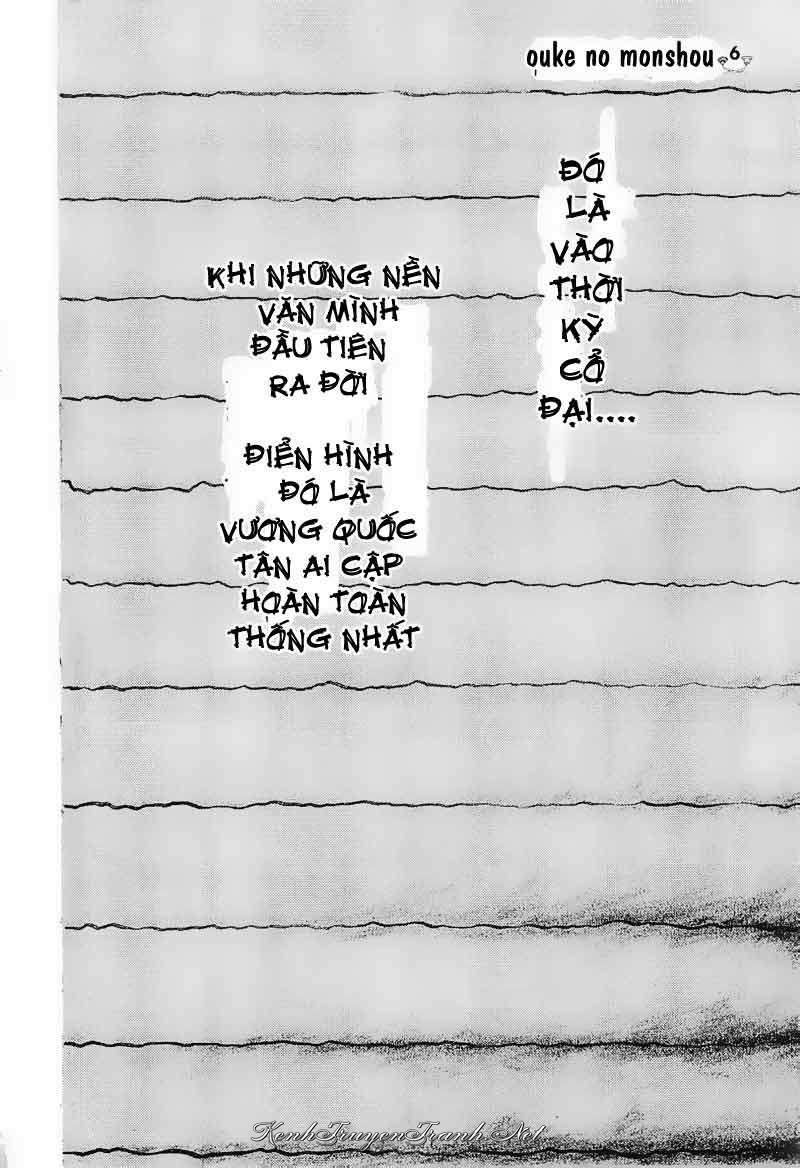 ouke no monshou 6
ĐÓ
LÀ
VÀO
THỜI
KỲ
CỔ
ĐẠI....
KHI NHỮNG NỀN
VĂN MÌNH
ĐẦU TIÊN
RA ĐỜI
ĐIỂN HÌNH
ĐÓ LÀ
VƯƠNG QUỐC
TÂN AI CẬP
HOÀN TOÀN
THỐNG NHẤT
KenhTruyenTranh.Net